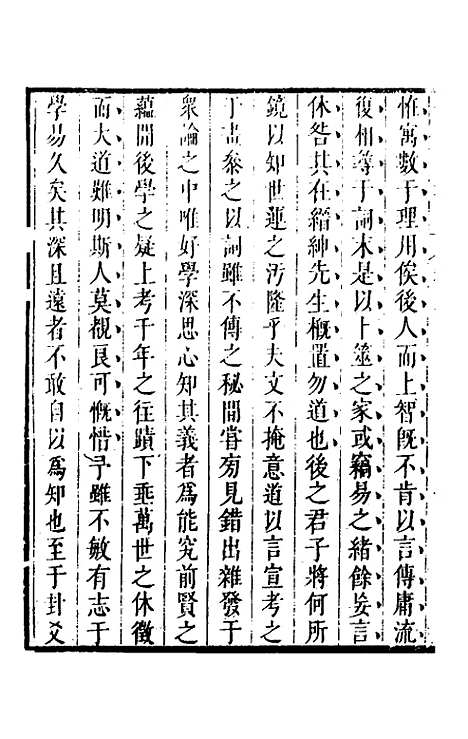 惟寓數于理用俟後人而上智既不肯以言傳庸流
復相尋于詞末是以卜筮之家或竊易之緒餘妄言
休咎其在縉紳先生概置勿道也後之君子將何所
鏡以知世運之汚隆乎夫文不掩意道以言宣考之
于畫參之以詞雖不傳之秘間嘗旁見錯出雜發于
衆論之中唯好學深思心知其義者爲能究前賢之
蘊開後學之疑上考千年之往蹟下垂萬世之休徵
而大道難明斯人莫覩良可慨惜予雖不敏有志于
學易久矣其深且遠者不敢自以爲知也至于卦爻